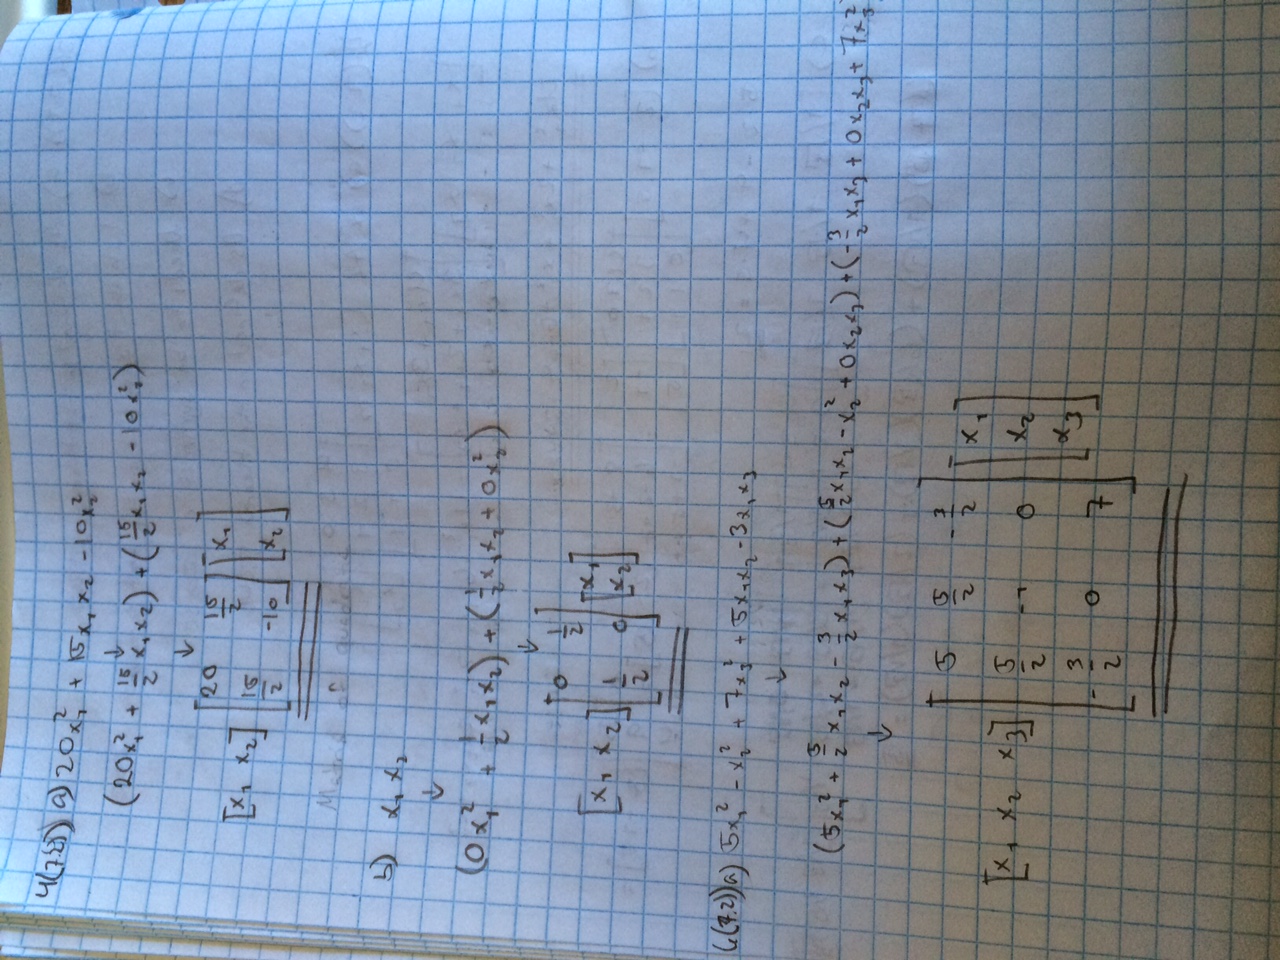 4(7.2)) a) 20x₁² + 15x₁x₂ - 10x₂²
↓
(20x₁² + 15/2 x₁x₂) + (15/2 x₁x₂ - 10x₂²)
↓
[x₁ x₂] [20 15/2; 15/2 -10] [x₁; x₂]
b) x₁x₂
↓
(0x₁² + 1/2 x₁x₂) + (1/2 x₁x₂ + 0x₂²)
↓
[x₁ x₂] [0 1/2; 1/2 0] [x₁; x₂]
6(7.2)) a) 5x₁² - x₂² + 7x₃² + 5x₁x₂ - 3x₁x₃
↓
(5x₁² + 5/2 x₁x₂ - 3/2 x₁x₃) + (5/2 x₁x₂ - x₂² + 0x₂x₃) + (-3/2 x₁x₃ + 0x₂x₃ + 7x₃²
↓
[x₁ x₂ x₃] [5 5/2 -3/2; 5/2 -1 0; -3/2 0 7] [x₁; x₂; x₃]